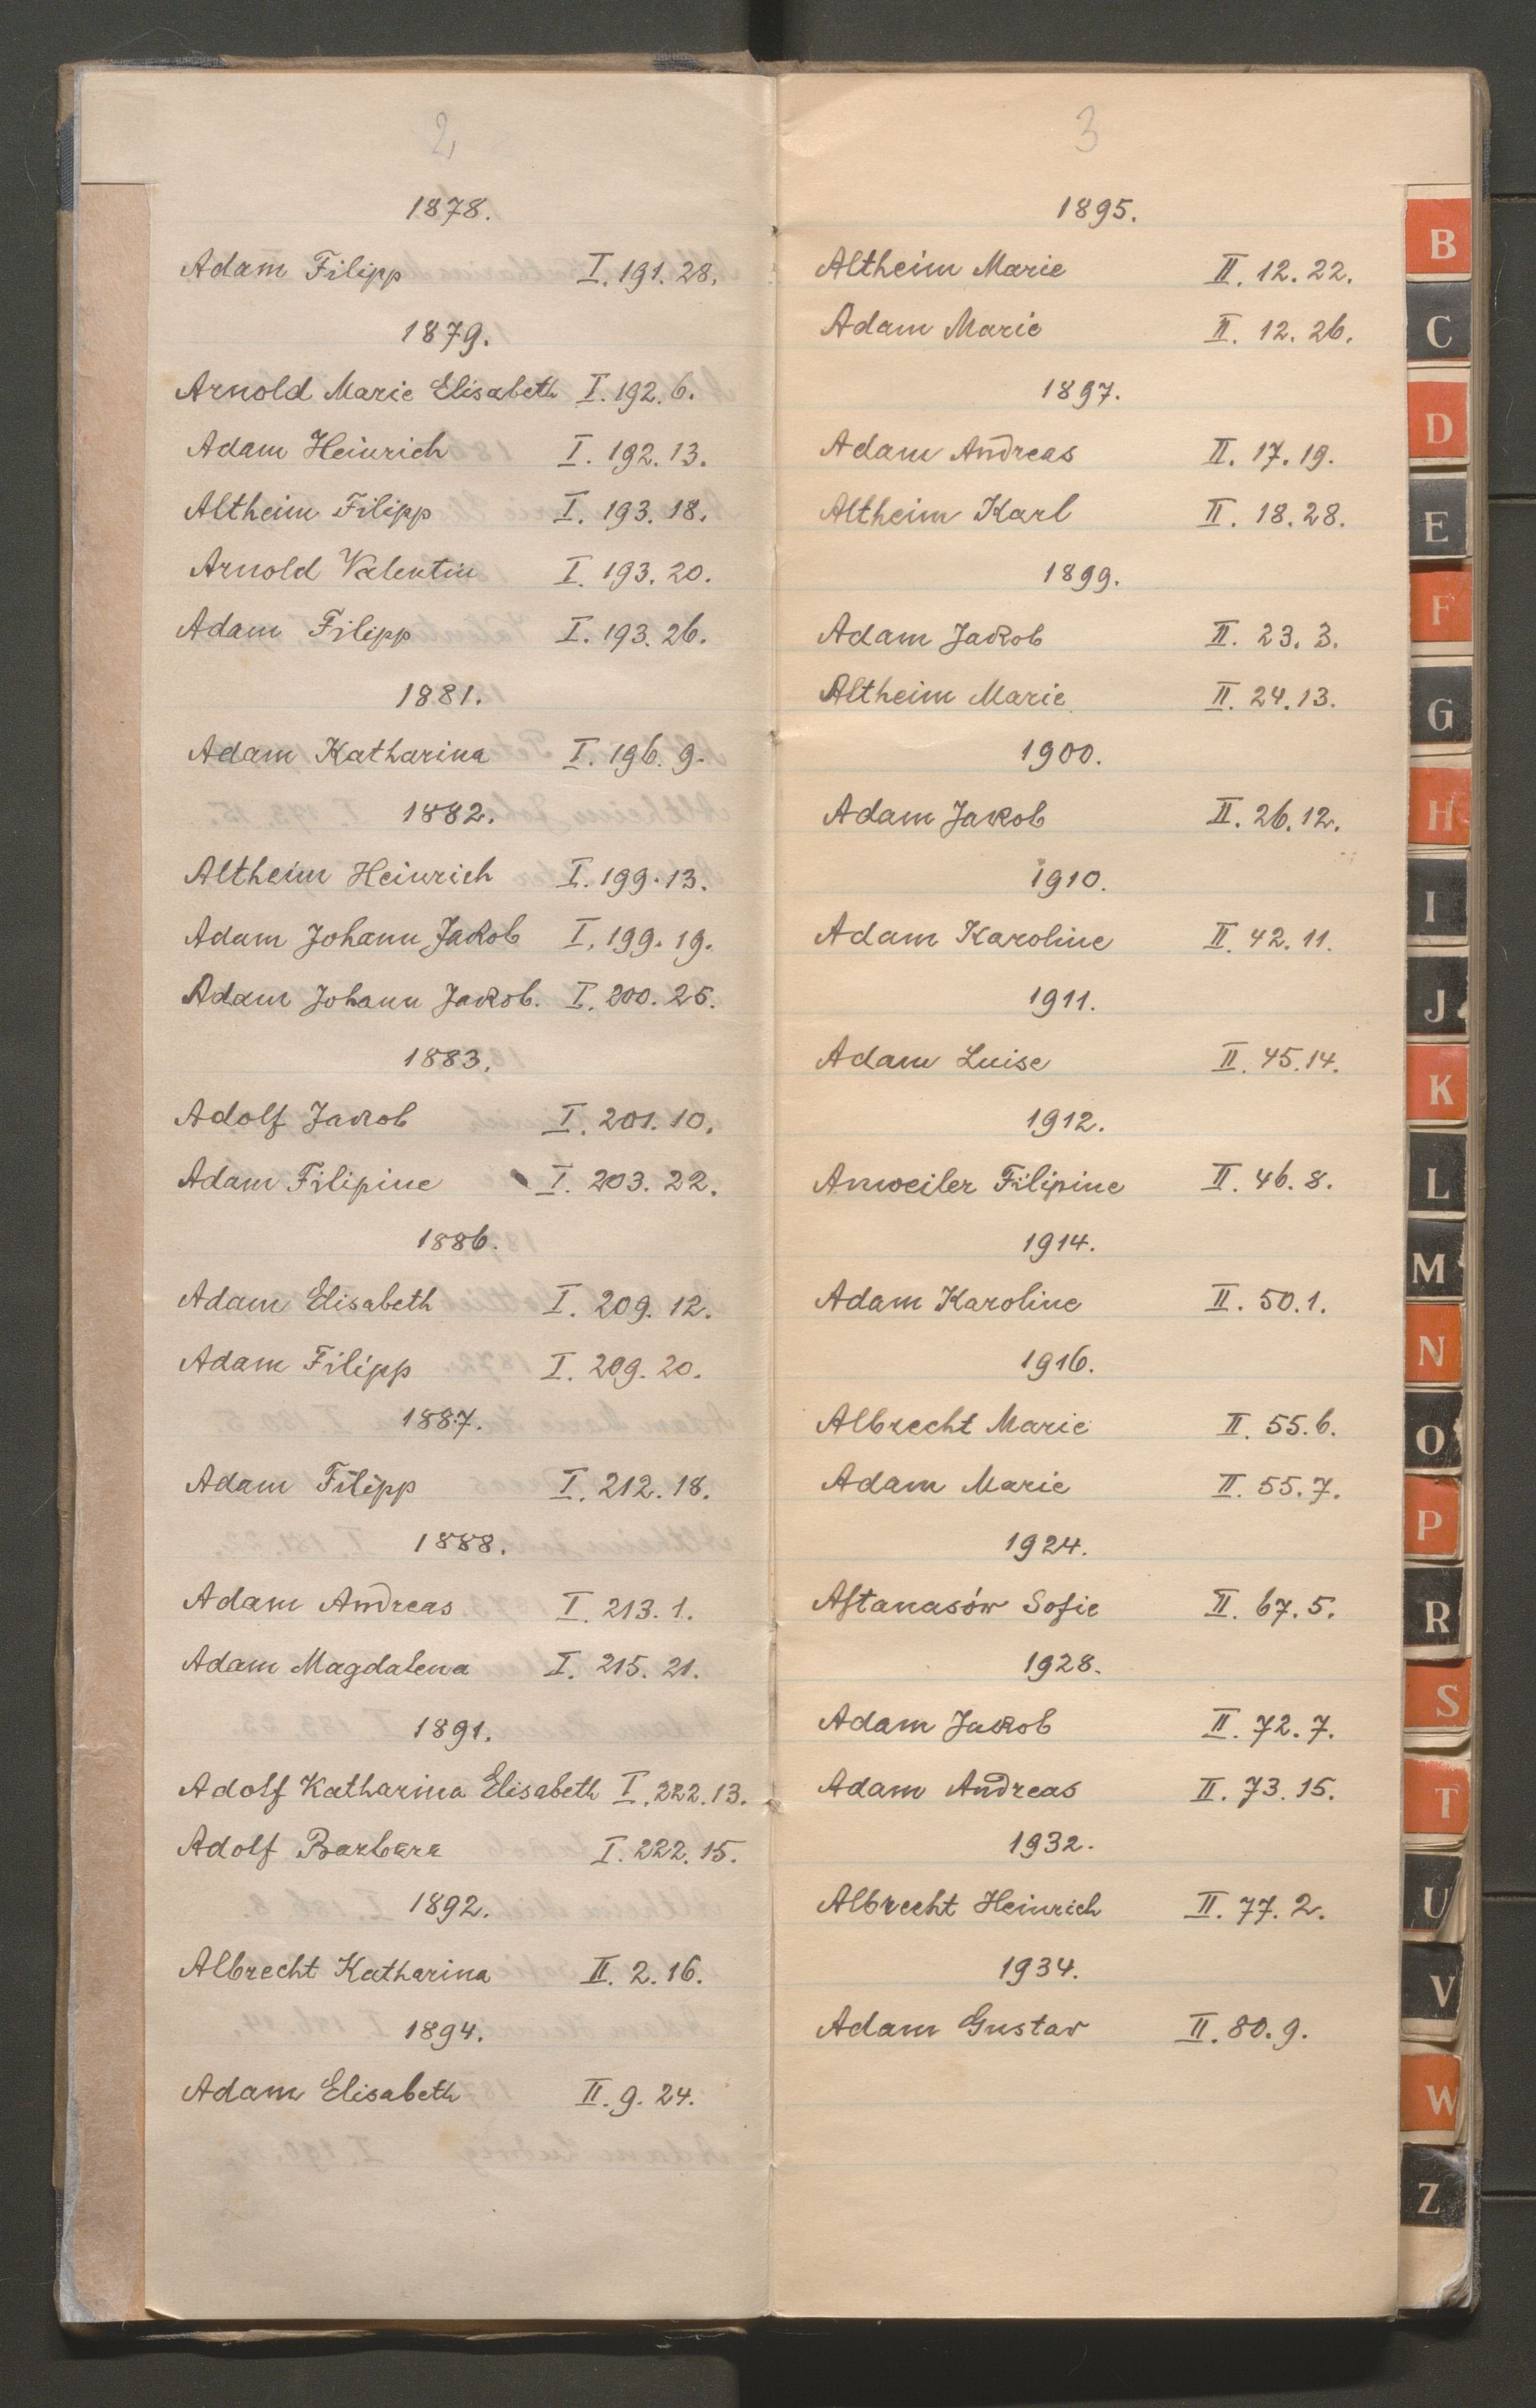 2,
1878.
Adam Filipp I. 191. 28.
1879.
Arnold Marie Elisabeth I. 192. 6.
Adam Heinrich I. 192. 13.
Altheim Filipp I. 193. 18.
Arnold Valentin I. 193. 20.
Adam Filipp I. 193. 26.
1881.
Adam Katharina I. 196. 9.
1882.
Altheim Heinrich I. 199. 13.
Adam Johann Jakob I. 199. 19.
Adam Johann Jakob. I. 200. 25.
1883.
Adolf Jakob I. 201. 10.
Adam Filipine I. 203. 22.
1886.
Adam Elisabeth I. 209. 12.
Adam Filipp I. 209. 20.
1887.
Adam Filipp I. 212. 18.
1888.
Adam Andreas I. 213. 1.
Adam Magdalena I. 215. 21.
1891.
Adolf Katharina Elisabeth I. 222. 13.
Adolf Barbara I. 222. 15.
1892.
Albrecht Katharina II. 2. 16.
1894.
Adam Elisabeth II. 9. 24.
3
1895.
Altheim Marie II. 12. 22.
Adam Marie II. 12. 26.
1897.
Adam Andreas II. 17. 19.
Altheim Karl II. 18. 28.
1899.
Adam Jakob II. 23. 3.
Altheim Marie II. 24. 13.
1900.
Adam Jakob II. 26. 12.
1910.
Adam Karoline II. 42. 11.
1911.
Adam Luise II. 45. 14.
1912.
Anweiler Filipine II. 46. 8.
1914.
Adam Karoline II. 50. 1.
1916.
Albrecht Marie II. 55. 6.
Adam Marie II. 55. 7.
1924.
Aftanasów Sofie II. 67. 5.
1928.
Adam Jakob II. 72. 7.
Adam Andreas II. 73. 15.
1932.
Albrecht Heinrich II. 77. 2.
1934.
Adam Gustav II. 80. 9.
B
C
D
E
F
G
H
I
J
K
L
M
N
O
P
R
S
T
U
V
W
Z